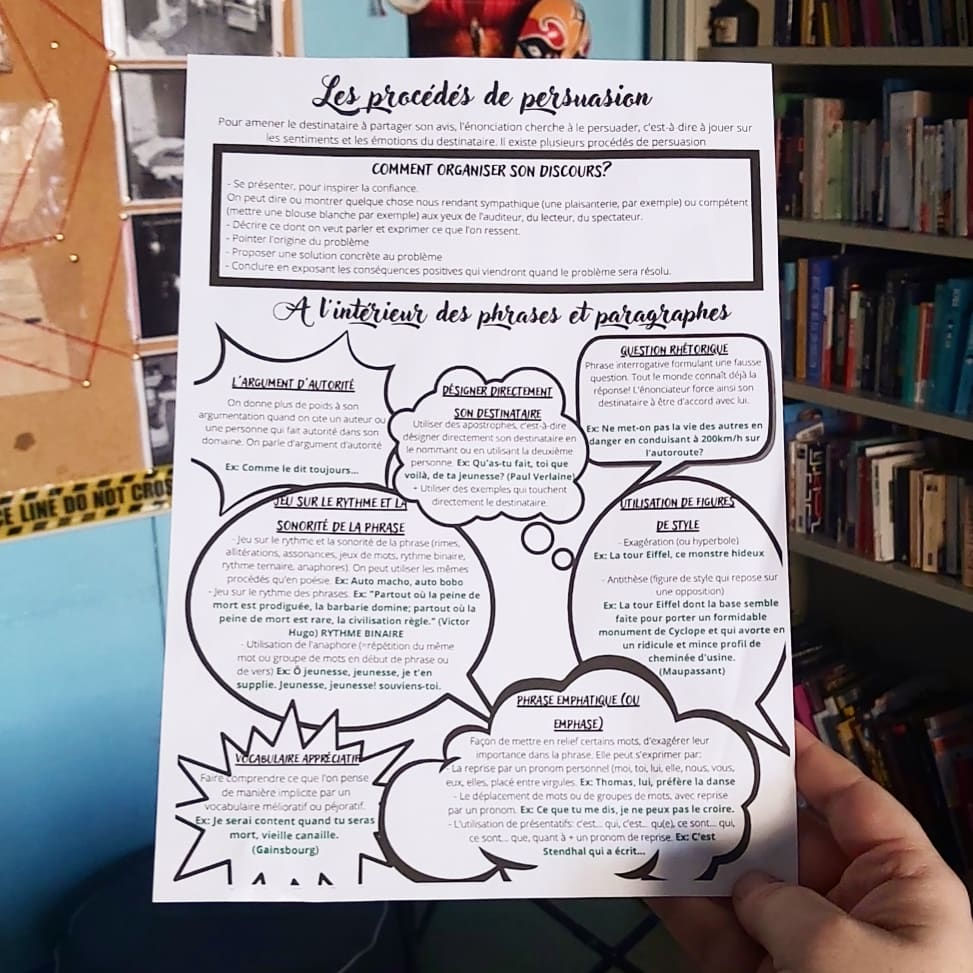 Les procédés de persuasion
Pour amener le destinataire à partager son avis, l'énonciation cherche à le persuader, c'est-à-dire à jouer sur
les sentiments et les émotions du destinataire. Il existe plusieurs procédés de persuasion
COMMENT ORGANISER SON DISCOURS?
- Se présenter, pour inspirer la confiance.
On peut dire ou montrer quelque chose nous rendant sympathique (une plaisanterie, par exemple) ou compétent
(mettre une blouse blanche par exemple) aux yeux de l'auditeur, du lecteur, du spectateur.
- Décrire ce dont on veut parler et exprimer ce que l'on ressent.
- Pointer l'origine du problème
- Proposer une solution concrète au problème
- Conclure en exposant les conséquences positives qui viendront quand le problème sera résolu.
A l'intérieur des phrases et paragraphes
L'ARGUMENT D'AUTORITÉ
On donne plus de poids à son
argumentation quand on cite un auteur ou
une personne qui fait autorité dans son
domaine. On parle d'argument d'autorité
Ex: Comme le dit toujours...
DÉSIGNER DIRECTEMENT
SON DESTINATAIRE
Utiliser des apostrophes, c'est-à-dire
désigner directement son destinataire en
le nommant ou en utilisant la deuxième
personne. Ex: Qu'as-tu fait, toi que
voilà, de ta jeunesse? (Paul Verlaine)
+ Utiliser des exemples qui touchent
directement le destinataire.
QUESTION RHÉTORIQUE
Phrase interrogative formulant une fausse
question. Tout le monde connaît déjà la
réponse! L'énonciateur force ainsi son
destinataire à être d'accord avec lui.
Ex: Ne met-on pas la vie des autres en
danger en conduisant à 200km/h sur
l'autoroute?
LINE DO NOT CROS
JEU SUR LE RYTHME ET LA
SONORITÉ DE LA PHRASE
- Jeu sur le rythme et la sonorité de la phrase (rimes,
allitérations, assonances, jeux de mots, rythme binaire,
rythme ternaire, anaphores). On peut utiliser les mêmes
procédés qu'en poésie. Ex: Auto macho, auto bobo
- Jeu sur le rythme des phrases. Ex: "Partout où la peine de
mort est prodiguée, la barbarie domine; partout où la
peine de mort est rare, la civilisation règle." (Victor
Hugo) RYTHME BINAIRE
- Utilisation de l'anaphore (=répétition du même
mot ou groupe de mots en début de phrase ou
de vers) Ex: Ô jeunesse, jeunesse, je t'en
supplie. Jeunesse, jeunesse! souviens-toi.
UTILISATION DE FIGURES
DE STYLE
- Exagération (ou hyperbole)
Ex: La tour Eiffel, ce monstre hideux
- Antithèse (figure de style qui repose sur
une opposition)
Ex: La tour Eiffel dont la base semble
faite pour porter un formidable
monument de Cyclope et qui avorte en
un ridicule et mince profil de
cheminée d'usine.
(Maupassant)
VOCABULAIRE APPRÉCIATIF
Faire comprendre ce que l'on pense
de manière implicite par un
vocabulaire mélioratif ou péjoratif.
Ex: Je serai content quand tu seras
mort, vieille canaille.
(Gainsbourg)
PHRASE EMPHATIQUE (OU
EMPHASE)
Façon de mettre en relief certains mots, d'exagérer leur
importance dans la phrase. Elle peut s'exprimer par:
- La reprise par un pronom personnel (moi, toi, lui, elle, nous, vous,
eux, elles, placé entre virgules. Ex: Thomas, lui, préfère la danse
- Le déplacement de mots ou de groupes de mots, avec reprise
par un pronom. Ex: Ce que tu me dis, je ne peux pas le croire.
- L'utilisation de présentatifs: c'est... qui, c'est... qu(e), ce sont... qui,
ce sont... que, quant à + un pronom de reprise. Ex: C'est
Stendhal qui a écrit...